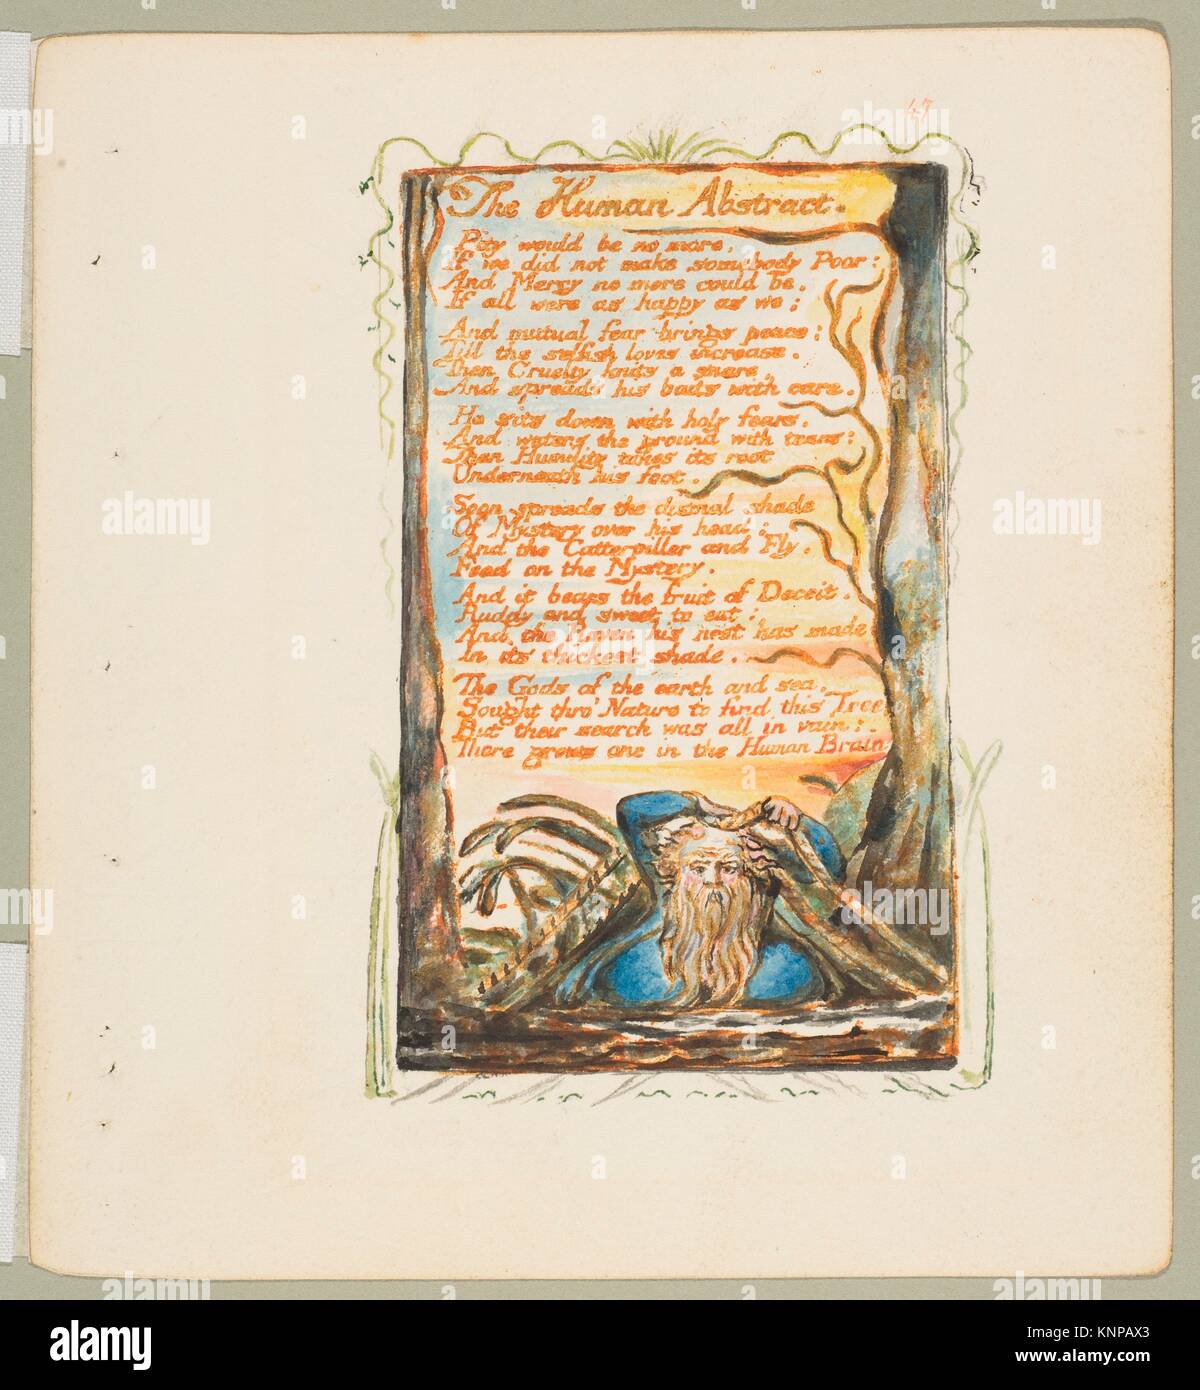 47
The Human Abstract.
Pity would be no more,
If we did not make somebody Poor:
And Mercy no more could be,
If all were as happy as we;
And mutual fear brings peace:
Till the selfish loves increase.
Then Cruelty knits a snare,
And spreads his baits with care.
He sits down with holy fears,
And waters the ground with tears:
Then Humility takes its root
Underneath his foot.
Soon spreads the dismal shade
Of Mystery over his head;
And the Catterpiller and Fly,
Feed on the Mystery.
And it bears the fruit of Deceit,
Ruddy and sweet to eat;
And the Raven his nest has made
In its thickest shade.
The Gods of the earth and sea,
Sought thro' Nature to find this Tree
But their search was all in vain:
There grows one in the Human Brain
alamy
a
alamy
Image ID: KNPAX3
www.alamy.com